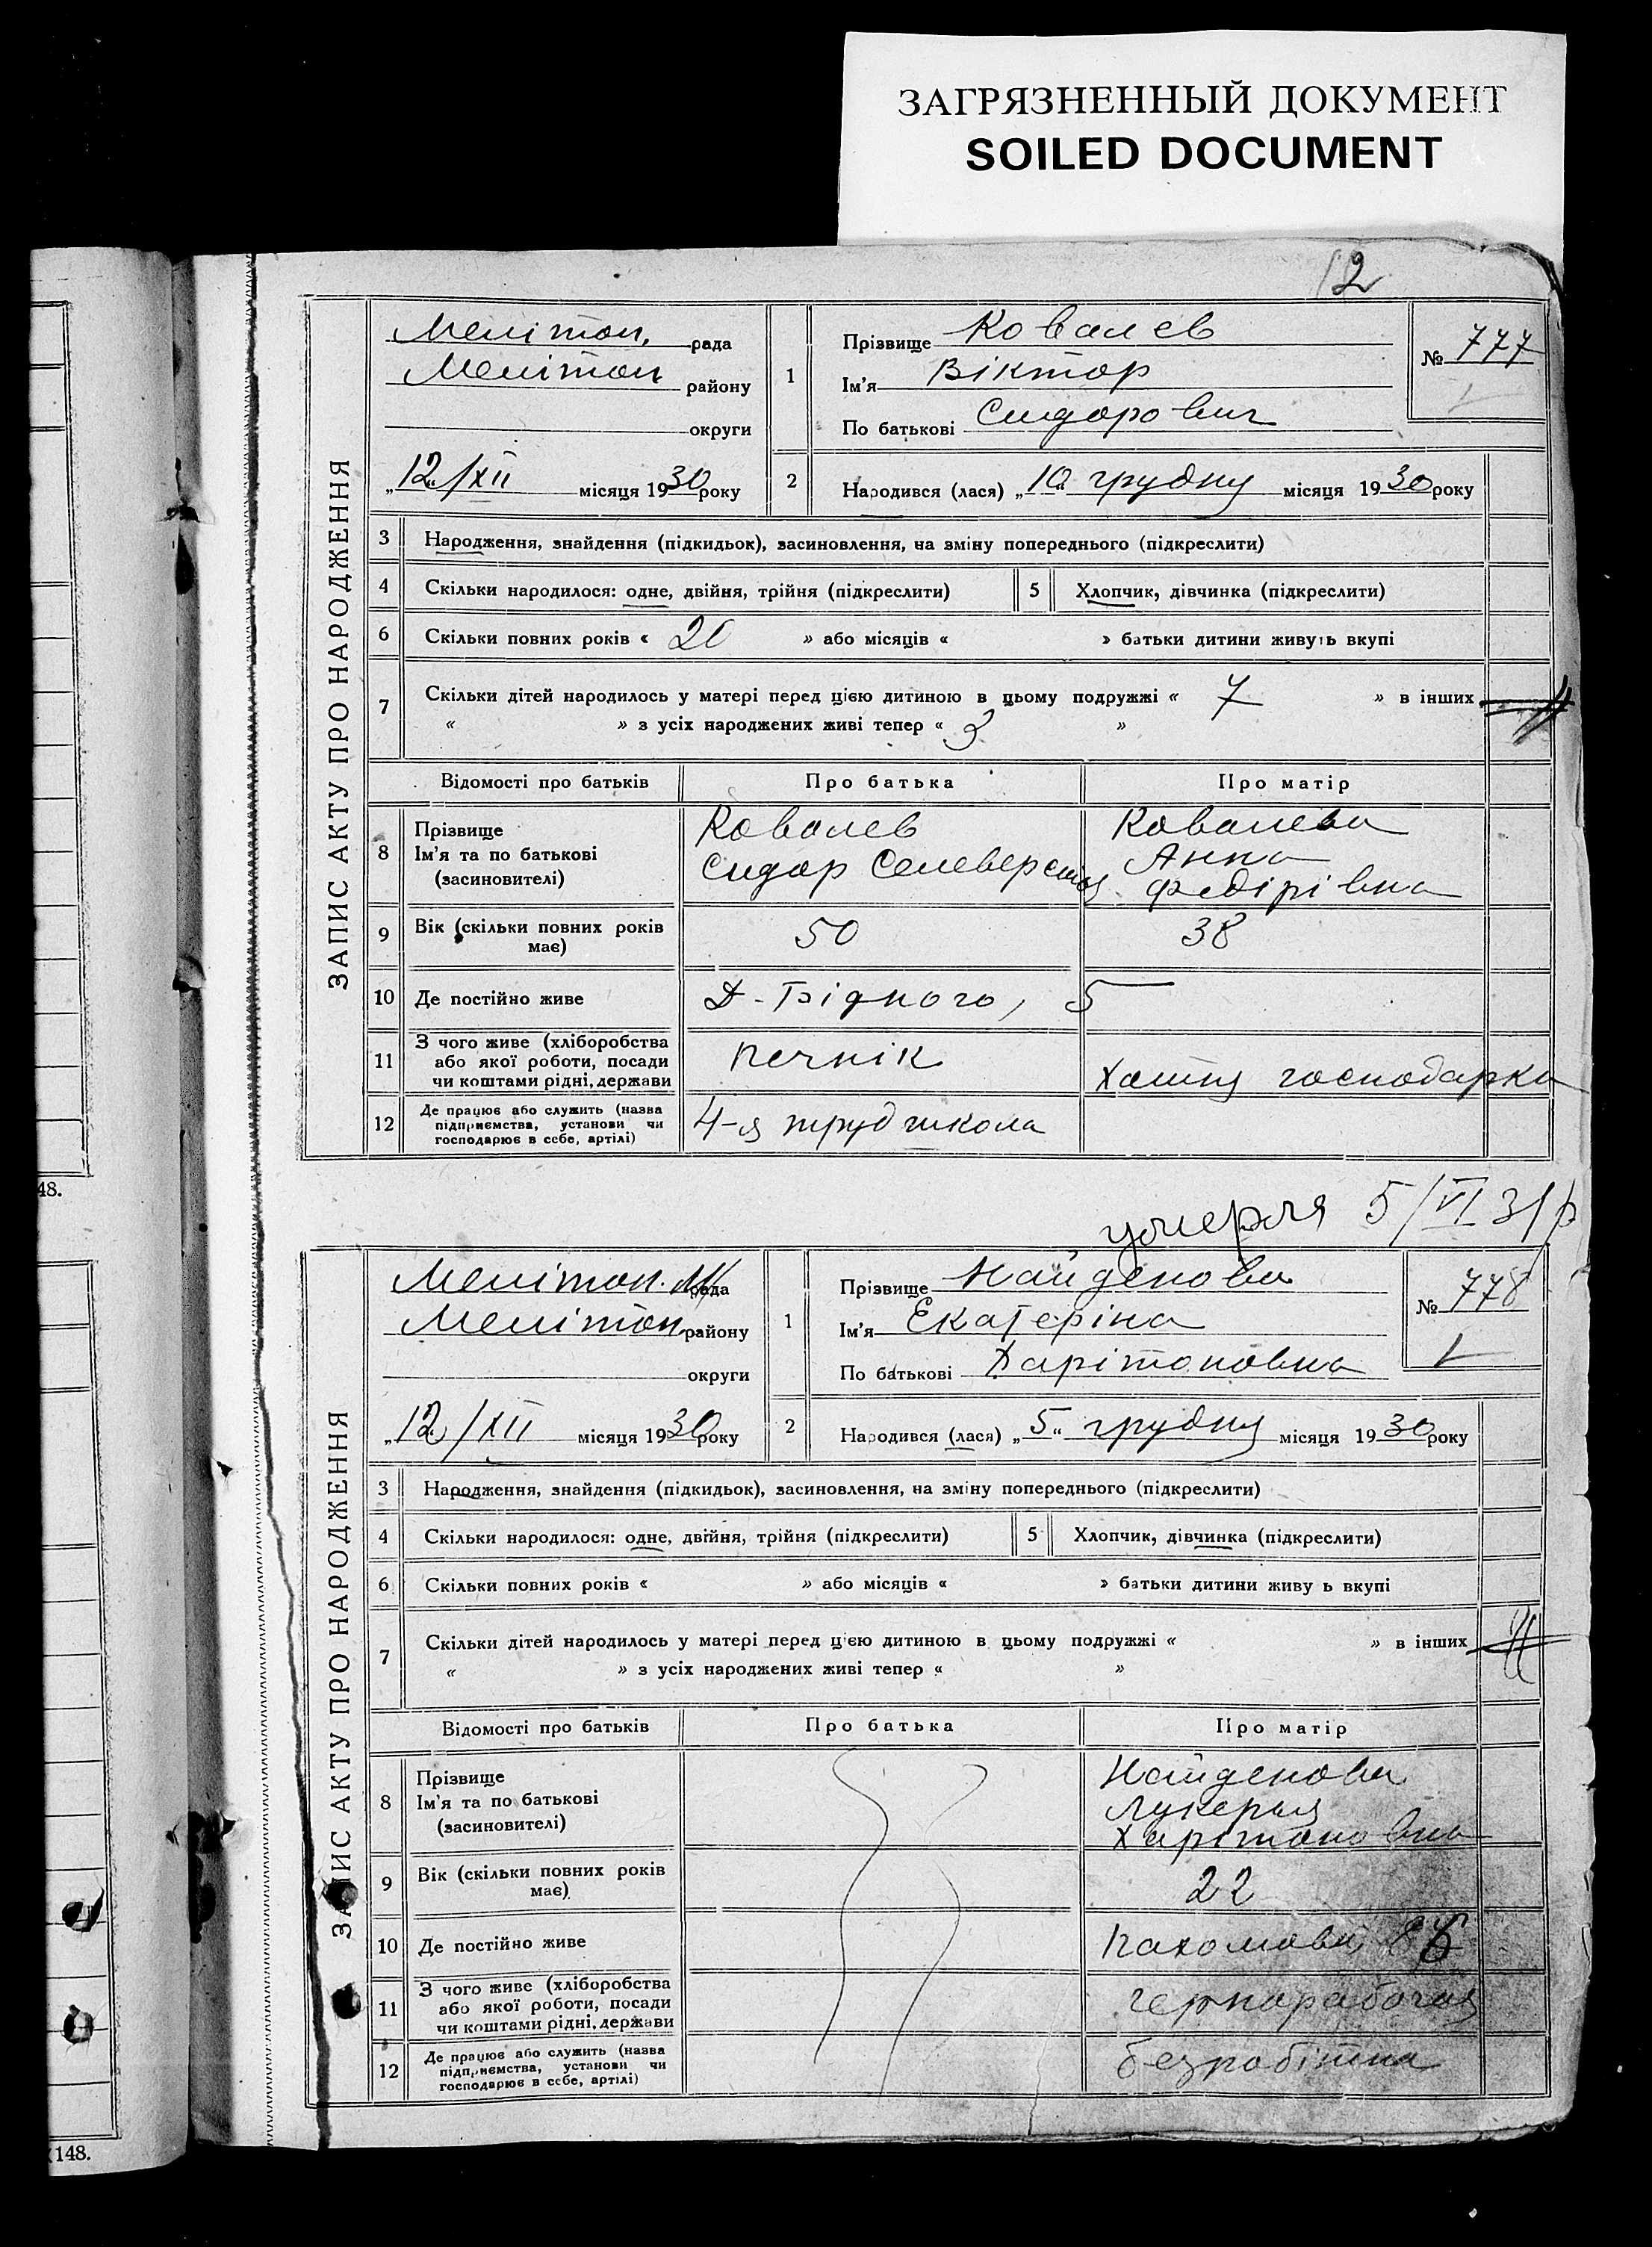 ЗАГРЯЗНЕННЫЙ ДОКУМЕНТ
SOILED DOCUMENT
12
ЗАПИС АКТУ ПРО НАРОДЖЕННЯ
Меліտоп. рада
Меліտоп району
округи
„12„/XII місяця 1930 року
1
Прізвище Ковалев
Ім'я Віктор
По батькові Сидорович
№ 777
2
Народився (лася) „10“ грудня місяця 1930 року
3 Народження, знайдення (підкидьок), засиновлення, на зміну попереднього (підкреслити)
4 Скільки народилося: одне, двійня, трійня (підкреслити) 5 Хлопчик, дівчинка (підкреслити)
6 Скільки повних років « 20 » або місяців « » батьки дитини живуть вкупі
7 Скільки дітей народилось у матері перед цією дитиною в цьому подружжі « 7 » в інших
« » з усіх народжених живі тепер « 3 »
Відомості про батьків Про батька Про матір
8 Прізвище Ім'я та по батькові (засновителі)
Ковалев
Сидор
Ковалева
Анна
Федірівна
9 Вік (скільки повних років має) 50 38
10 Де постійно живе Д-Бідного, 5
11 З чого живе (хліборобства або якої роботи, посади чи коштами рідні, держави печнік господарка
12 Де працює або служить (назва підприємства, установи чи господарює в себе, артілі) 4-я трудшкола
48.
умерля 5/VI 31 р
ЗАПИС АКТУ ПРО НАРОДЖЕННЯ
Меліտоп. рада
Меліտоп району
округи
„12/XII місяця 1930 року
1
Прізвище Найденова
Ім'я Екатеріна
По батькові Харітоновна
№ 778
2
Народився (лася) „5“ грудня місяця 1930 року
3 Народження, знайдення (підкидьок), засиновлення, на зміну попереднього (підкреслити)
4 Скільки народилося: одне, двійня, трійня (підкреслити) 5 Хлопчик, дівчинка (підкреслити)
6 Скільки повних років « » або місяців « » батьки дитини живу ь вкупі
7 Скільки дітей народилось у матері перед цією дитиною в цьому подружжі « » в інших
« » з усіх народжених живі тепер « »
Відомості про батьків Про батька Про матір
8 Прізвище Ім'я та по батькові (засиновителі)
Найденова
Лукерья
Харітоновна
9 Вік (скільки повних років має) 22
10 Де постійно живе Пахомова,
11 З чого живе (хліборобства або якої роботи, посади чи коштами рідні, держави чернорабочая
12 Де працює або служить (назва підприємства, установи чи господарює в себе, артілі) безробітна
148.